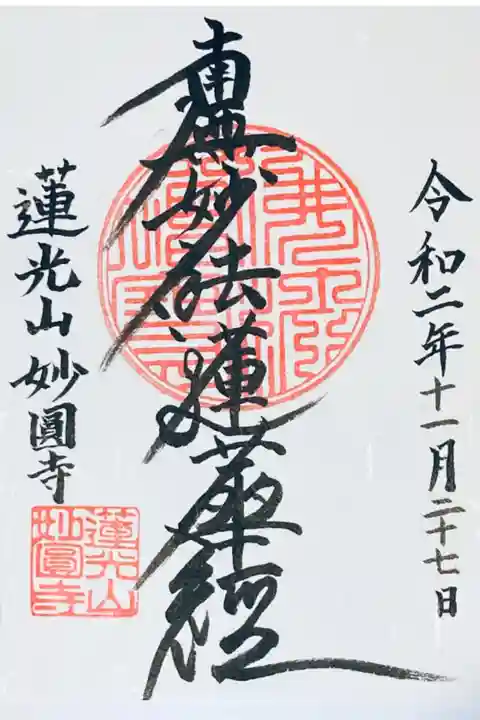 令和二年十一月二十七日
南無妙法蓮華經
蓮光山妙圓寺
蓮光山
妙圓寺